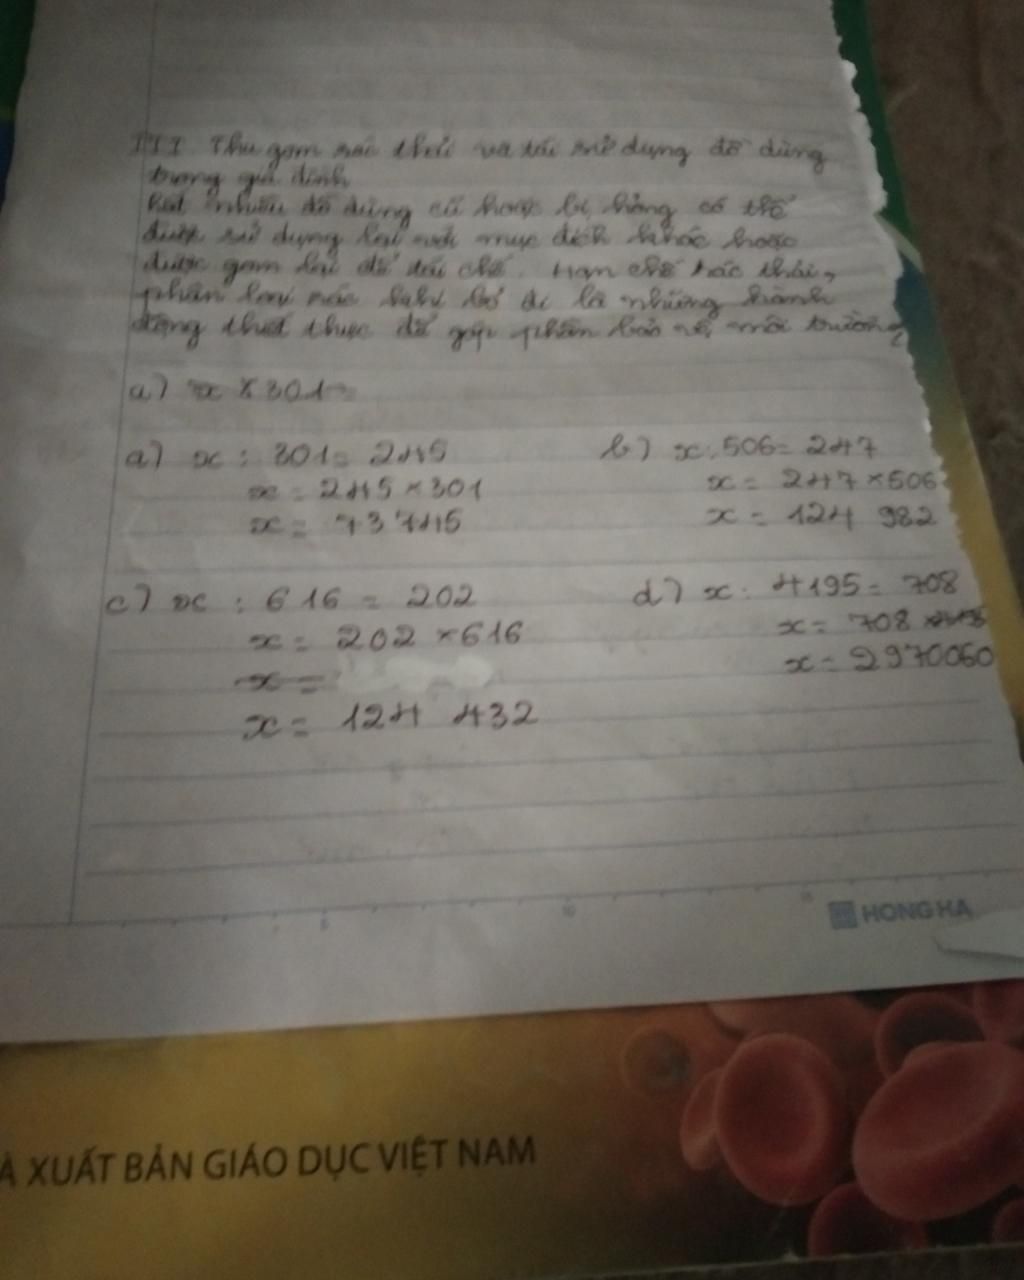 III Thu gom rác thải và tái sử dụng đồ dùng
trong gia đình
Rất nhiều đồ dùng cũ hoặc bị hỏng có thể
được sử dụng lại với mục đích khác hoặc
được gom lại để tái chế. Hạn chế rác thải,
phân loại rác khi bỏ đi là những hành
động thiết thực để góp phần bảo vệ môi trường
a) x × 301 =
a) x : 301 = 245
b) x : 506 = 247
x = 245 × 301
x = 247 × 506
x = 73745
x = 124 982
c) x : 616 = 202
d) x : 4195 = 708
x = 202 × 616
x = 708 × 4195
x =
x = 2970060
x = 124 432
5
10
15
HONG HA
À XUẤT BẢN GIÁO DỤC VIỆT NAM